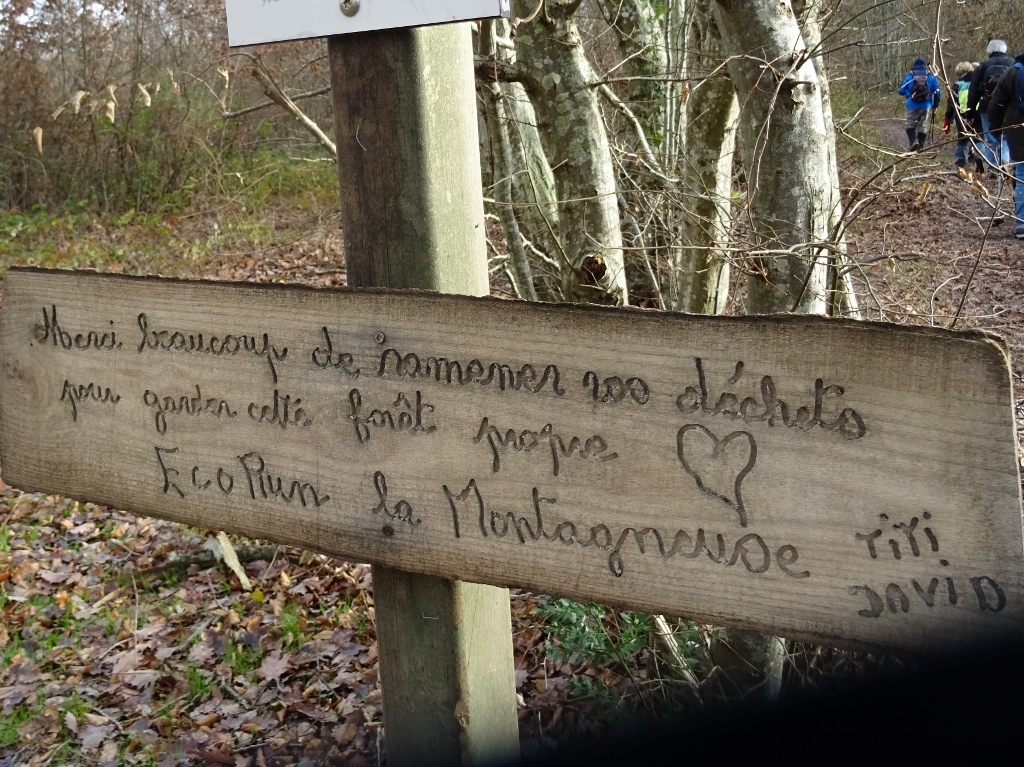 Merci beaucoup de ramener vos déchets
pour garder cette forêt propre
EcoRun la Montagneuse
TiTi
DAViD